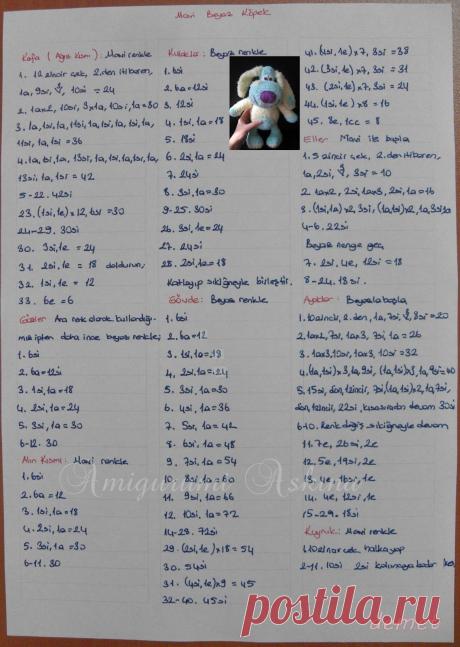 Mavi Beyaz Köpek
Kafa (Ağız Kısmı): Mavi renkle
1. 12 zincir çek, 2.den itibaren,
1a, 9si, 10si = 24
2. 1ax2, 10si, 3x1a, 10si, 1a = 30
13si, 1a, 1si = 42
5-22. 42si
23. (1si, 1e) x 12, 1si = 30
24-29. 30si
30. 3si, 1e = 24
31. 2si, 1e = 18 doldurun,
32. 1si, 1e = 12
33. 6e = 6
Gözler: Ara renk olarak kullandığı-
mız ipten daha ince beyaz renkle;
1. 6si
2. 6a = 12si
3. 1si, 1a = 18
4. 2si, 1a = 24
5. 3si, 1a = 30
6-12. 30
Alın Kısmı: Mavi renkle
1. 6si
2. 6a = 12
3. 1si, 1a = 18
4. 2si, 1a = 24
5. 3si, 1a = 30
6-11. 30
Kulaklar: Beyaz renkle
1. 6si
2. 6a = 12si
3. 12si
4. 1si, 1a = 18
5. 18si
6. 2si, 1a = 24
7. 24si
8. 3si, 1a = 30
9-25. 30si
26. 3si, 1e = 24
27. 24si
28. 2si, 1a = 18
Katlayıp sık iğneyle birleştir.
Gövde: Beyaz renkle
1. 6si
2. 6a = 12
3. 1si, 1a = 18
4. 2si, 1a = 24
5. 3si, 1a = 30
6. 4si, 1a = 36
7. 5si, 1a = 42
8. 6si, 1a = 48
9. 7si, 1a = 54
10. 8si, 1a = 60
11. 9si, 1a = 66
12. 10si, 1a = 72
14-28. 72si
29. (2si, 1e) x 18 = 54
30. 54si
31. (4si, 1e) x 9 = 45
32-40. 45si
41. (4si, 1e) x7, 3si = 38
42. (3si, 1e) x7, 3si = 31
43. (2si, 1e) x7, 3si = 24
44. (1si, 1e) x 8 = 16
45. 8e, 1cc = 8
Eller: Mavi ile başla
1. 5 zincir çek, 2.den itibaren,
1a, 2si, 3si = 10
2. 1ax2, 2si, 1ax3, 2si, 1a = 16
3. (1si, 1a) x2, 3si, (1a, 1si) x2, 1a, 3si, 1a
4-6. 22si
Beyaz renge geç
7. 2si, 4e, 12si = 18
8-24. 18si.
Ayaklar: Beyazla başla
1. 10 zincir, 2.den, 1a, 7si, 8si = 20
2. 1ax2, 7si, 1ax3, 7si, 1a = 26
3. 1ax3, 10si, 1ax3, 10si = 32
dön, 12zincir, 22si, kısa sıradan devam 30si
6-10. Renk değiş sık iğneyle devam
11. 7e, 26si, 2e
12. 5e, 19si, 2e
13. 4e, 16si, 1e
14. 4e, 12si, 1e
15-29. 18si
Kuyruk: Mavi renkle
1. 10 zincir çek halka yap
2-11. 10si 2si kalıncaya kadar
Amigurumi Askına
postila.ru